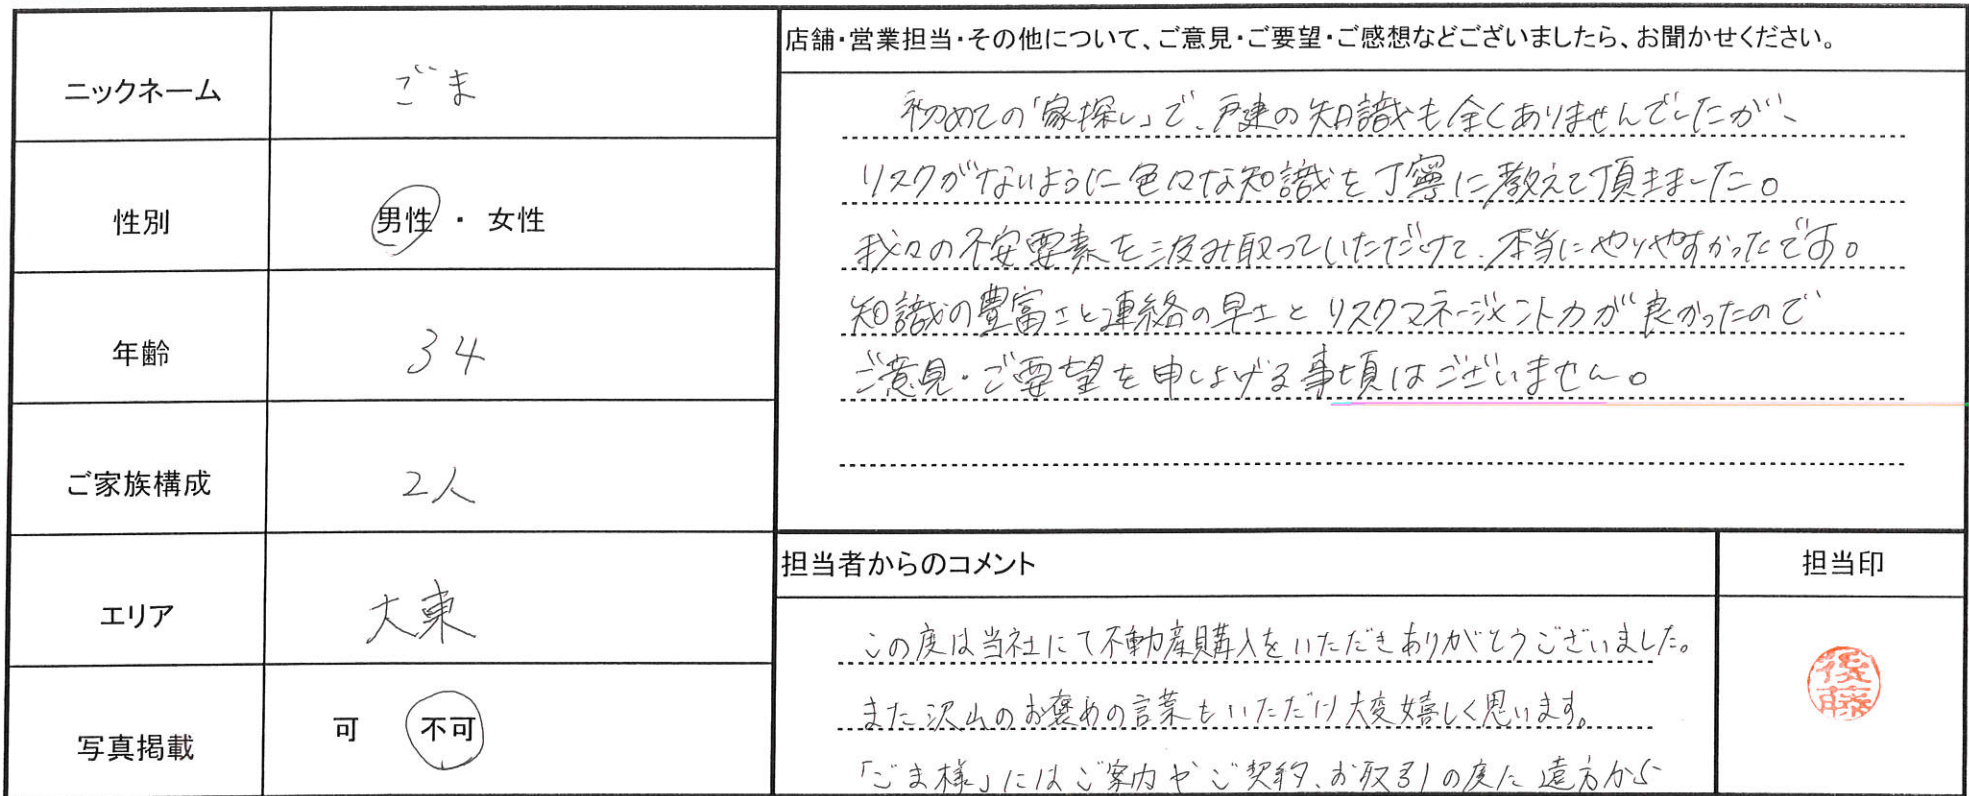 ニックネーム
ごま
性別
男性 ・ 女性
年齢
34
ご家族構成
2人
エリア
大東
写真掲載
可 不可
店舗・営業担当・その他について、ご意見・ご要望・ご感想などございましたら、お聞かせください。
初めての「家探し」で、戸建の知識も全くありませんでしたが、
リスクがないように色々な知識を丁寧に教えて頂きました。
我々の不安要素を汲み取っていただけて、本当にやりやすかったです。
知識の豊富さと連絡の早さとリスクマネージメント力が良かったので
ご意見・ご要望を申し上げる事項はございません。
担当者からのコメント
担当印
この度は当社にて不動産購入をいただきありがとうございました。
また沢山のお褒めの言葉もいただけ大変嬉しく思います。
「ごま様」にはご案内やご契約、お取引の度に遠方から
後藤